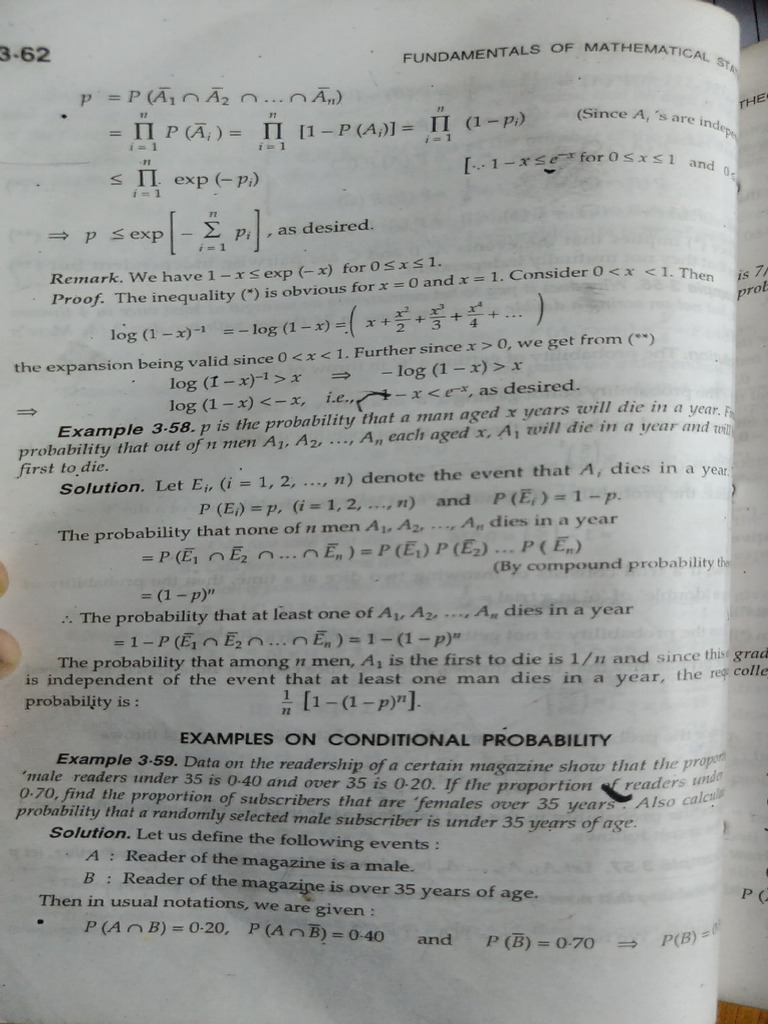 3·62
FUNDAMENTALS OF MATHEMATICAL
p = P (Ā₁ ∩ Ā₂ ∩ ... ∩ Āₙ)
= ∏ᵢ₌₁ⁿ P (Āᵢ) = ∏ᵢ₌₁ⁿ [1 – P (Aᵢ)] = ∏ᵢ₌₁ⁿ (1 – pᵢ) (Since Aᵢ 's are
≤ ∏ᵢ₌₁ⁿ exp (– pᵢ) [∵ 1 – x ≤ e⁻ˣ for 0 ≤ x ≤ 1 and 0
⇒ p ≤ exp [ – Σᵢ₌₁ⁿ pᵢ ], as desired.
Remark. We have 1 – x ≤ exp (– x) for 0 ≤ x ≤ 1.
Proof. The inequality (*) is obvious for x = 0 and x = 1. Consider 0 < x < 1. Then
log (1 – x)⁻¹ = – log (1 – x) = ( x + x²/2 + x³/3 + x⁴/4 + ... )
the expansion being valid since 0 < x < 1. Further since x > 0, we get from (**)
log (1 – x)⁻¹ > x ⇒ – log (1 – x) > x
⇒ log (1 – x) < – x, i.e., – x < e⁻ˣ, as desired.
Example 3·58. p is the probability that a man aged x years will die in a year.
probability that out of n men A₁, A₂, ..., Aₙ each aged x, A₁ will die in a year and
first to die.
Solution. Let Eᵢ, (i = 1, 2, ..., n) denote the event that Aᵢ dies in a year.
P (Eᵢ) = p, (i = 1, 2, ..., n) and P (Ēᵢ) = 1 – p.
The probability that none of n men A₁, A₂, ..., Aₙ dies in a year
= P (Ē₁ ∩ Ē₂ ∩ ... ∩ Ēₙ) = P (Ē₁) P (Ē₂) ... P (Ēₙ)
(By compound probability
= (1 – p)ⁿ
∴ The probability that at least one of A₁, A₂, ..., Aₙ dies in a year
= 1 – P (Ē₁ ∩ Ē₂ ∩ ... ∩ Ēₙ) = 1 – (1 – p)ⁿ
The probability that among n men, A₁ is the first to die is 1/n and since this
is independent of the event that at least one man dies in a year, the
probability is : 1/n [1 – (1 – p)ⁿ].
EXAMPLES ON CONDITIONAL PROBABILITY
Example 3·59. Data on the readership of a certain magazine show that the
'male readers under 35 is 0·40 and over 35 is 0·20. If the proportion of readers
0·70, find the proportion of subscribers that are 'females over 35 years'. Also
probability that a randomly selected male subscriber is under 35 years of age.
Solution. Let us define the following events :
A : Reader of the magazine is a male.
B : Reader of the magazine is over 35 years of age.
Then in usual notations, we are given :
P (A ∩ B) = 0·20, P (A ∩ B̄) = 0·40 and P (B̄) = 0·70 ⇒ P(B) =
is 7/
P (